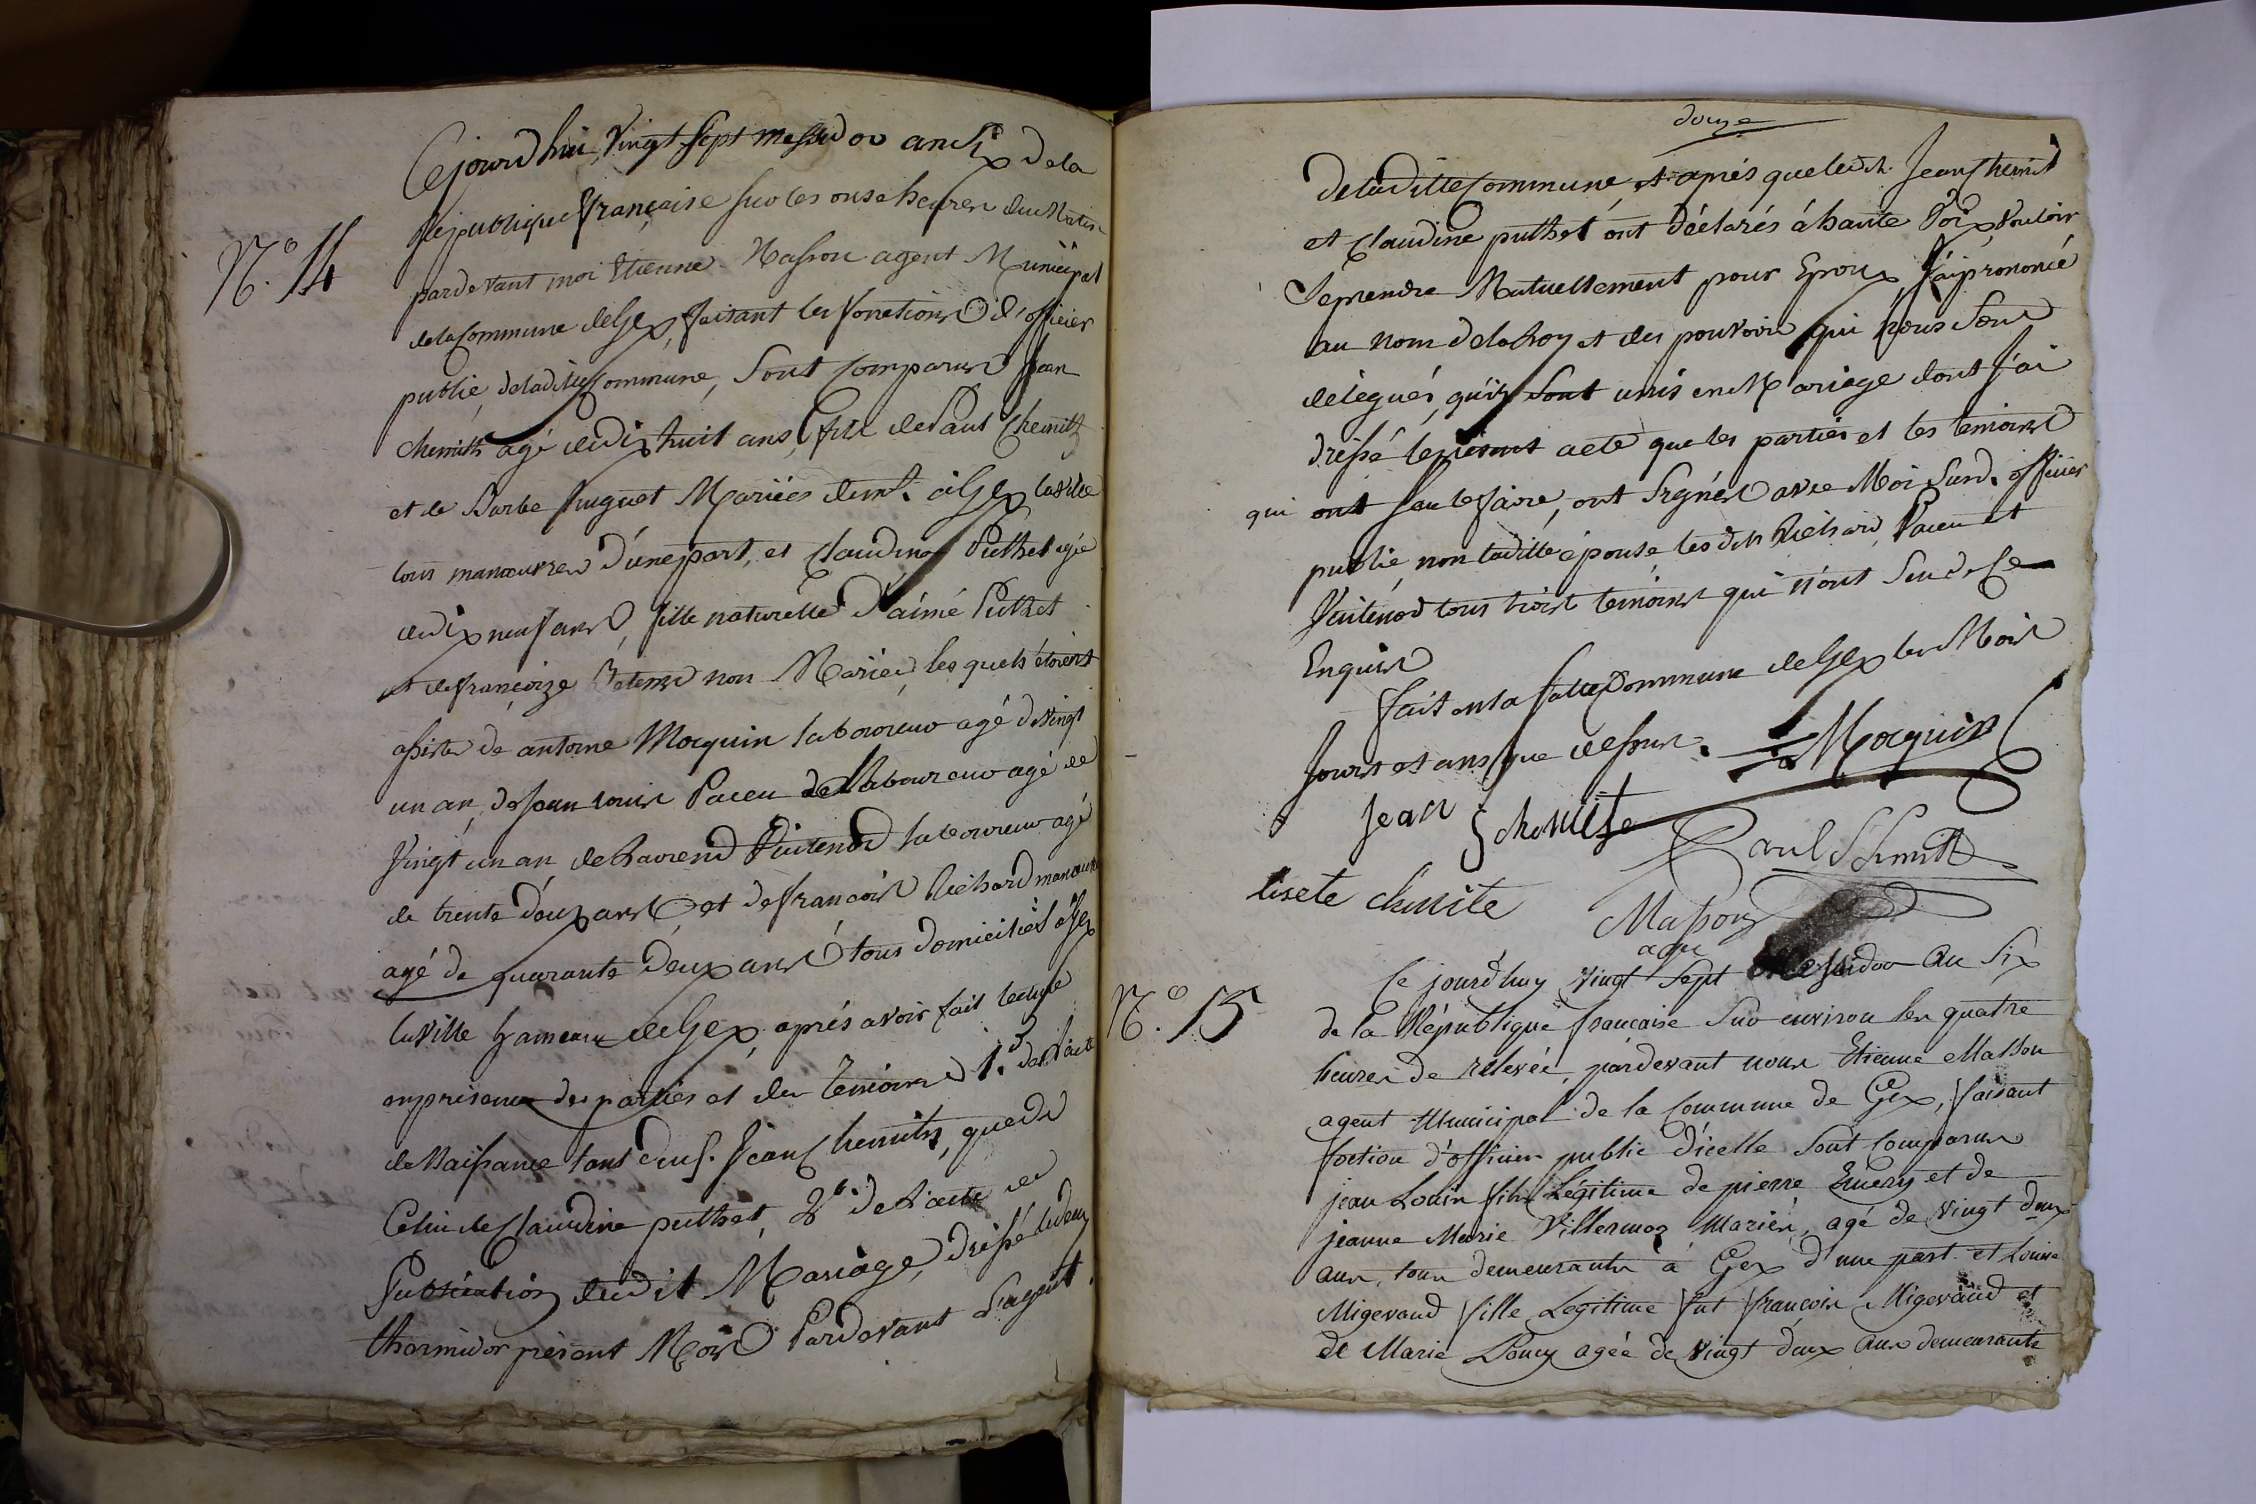 Cejourd'hui, Vingt Sept messidor an Six de la
République française sur les onse heures du Matin
pardevant moi Etienne Masson agent Municipal
de la Commune de Gex, faisant les fonctions d'officier
public de ladite Commune, Sont comparus Jean
Chemith agé de dix huit ans, fils de Paul Chemith
N.o 14
et de Barbe huguet Mariés demt. à Gex la ville
tous manœuvres d'une part, et Claudine Puthet agée
de dix neuf ans, fille naturelle d'aimé Puthet
et de françoize non Mariés, les quels étoient
assistés de antoine Mocquin laboureur agé de Vingt
un an, de Jean Louis Paceu de laboureur agé de
Vingt un an, de laboureur agé
de trente deux ans et de françois Richard manœuvre
agé de quarante deux ans tous domiciliés à Gex
la ville hameau de Gex, aprés avoir fait lecture
en présence des parties et des témoins 1.o de l'acte
de Naissance tant dud. Jean Chemith, que de
Celui de Claudine puthet, 2.o de l'acte de
Publication dudit Mariage, dréssé le deux
thermidor présent Mois Pardevant l'agent
douze
de laditte Commune, et aprés que led. Jean Chemit
et Claudine puthet ont déclarés à haute Voix Vouloir
se prendre Mutuellement pour Epoux, J'ai prononcé
au nom de la Loy et des pouvoirs qui nous sont
delegués, qu'ils sont unis en Mariage dont j'ai
dréssé le présent acte que les parties et les temoins
qui ont seu le faire, ont signés avec Moi Susd. officier
public, non laditte épouse, les dits Richard, Paceu et
tous trois temoins qui n'ont seu de ce
Enquis
fait en la salle Commune de Gex les Mois
Jours et ans que dessus. Mocquin
Jean Schmite
Paul Schmitt
lisete chmite
Masson
agt
N.o 15
Ce jourd'huy vingt Sept Messidor an Six
de la République française sur environ les quatre
heures de rélevée, pardevant nous Etienne Masson
agent Municipal de la Commune de Gex, faisant
foction d'officier public d'icelle Sont Comparus
jean Louis fils Légitime de pierre Emery et de
jeanne Marie Villermoz Mariés, agé de vingt deux
ans, tous demeurants à Gex d'une part et Louise
Migevand fille Legitime fut françois Migevand et
de Marie Poncy agée de vingt deux ans demeurants